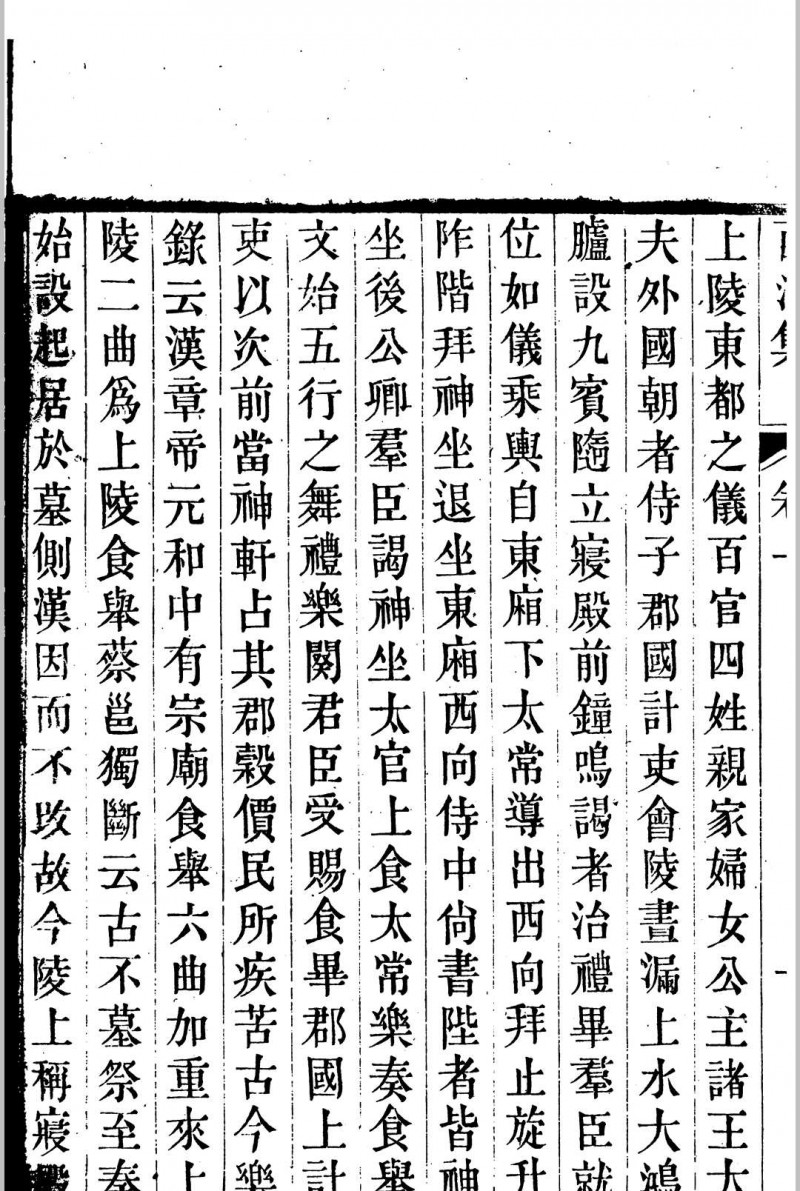 集
卷一
上陵東都之儀百官四姓親家婦女公主諸王大
夫外國朝者侍子郡國計吏會陵晝漏上水大鴻
臚設九賓隨立寢殿前鐘鳴謁者治禮畢羣臣就
位如儀乘輿自東廂下太常導出西向拜止旋升
阼階拜神坐退坐東廂西向侍中尙書陛者皆神
坐後公卿羣臣謁神坐太官上食太常樂奏食舉
文始五行之舞禮樂闋君臣受賜食畢郡國上計
吏以次前當神軒占其郡穀價民所疾苦古今樂
錄云漢章帝元和中有宗廟食舉六曲加重來上
陵二曲爲上陵食舉蔡邕獨斷云古不墓祭至秦
始設起居於墓側漢因而不改故今陵上稱寢殿